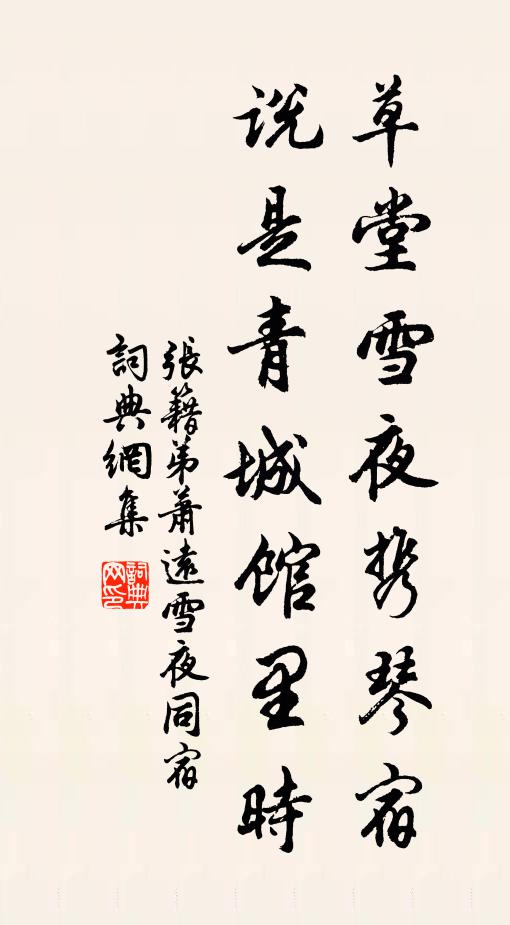 草堂雪夜携琴宿
説是青城館里時
張籍弟蕭遠雪夜同宿
詞典網集
詞典网印